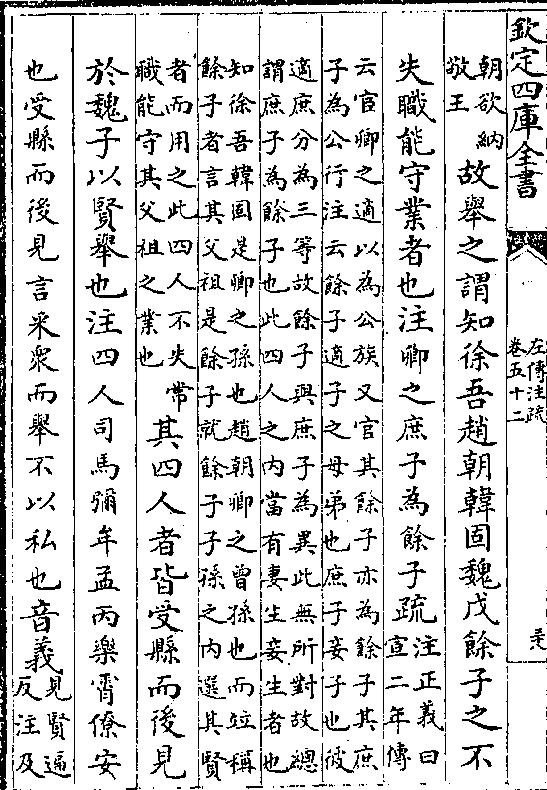 欽定四庫全書
左傳注疏
卷五十二
朝欲納
敬王
故舉之謂知徐吾趙朝韓固魏戊餘子之不
失職能守業者也注卿之庶子為餘子疏
注正義曰
宣二年傳
云官卿之適以為公族又官其餘子亦為餘子其庶
子為公行注云餘子適子之母弟也庶子妾子也彼
適庶分為三等故餘子與庶子為異此無所對故總
謂庶子為餘子也此四人之內當有妻生妾生者也
知徐吾韓固是卿之孫也趙朝卿之曾孫也而竝稱
餘子者言其父祖是餘子就餘子子孫之內選其賢
者而用之此四人不失常
職能守其父祖之業也
其四人者皆受縣而後見
於魏子以賢舉也注四人司馬彌牟孟丙樂霄僚安
也受縣而後見言采衆而舉不以私也音義
見賢遍
反注及